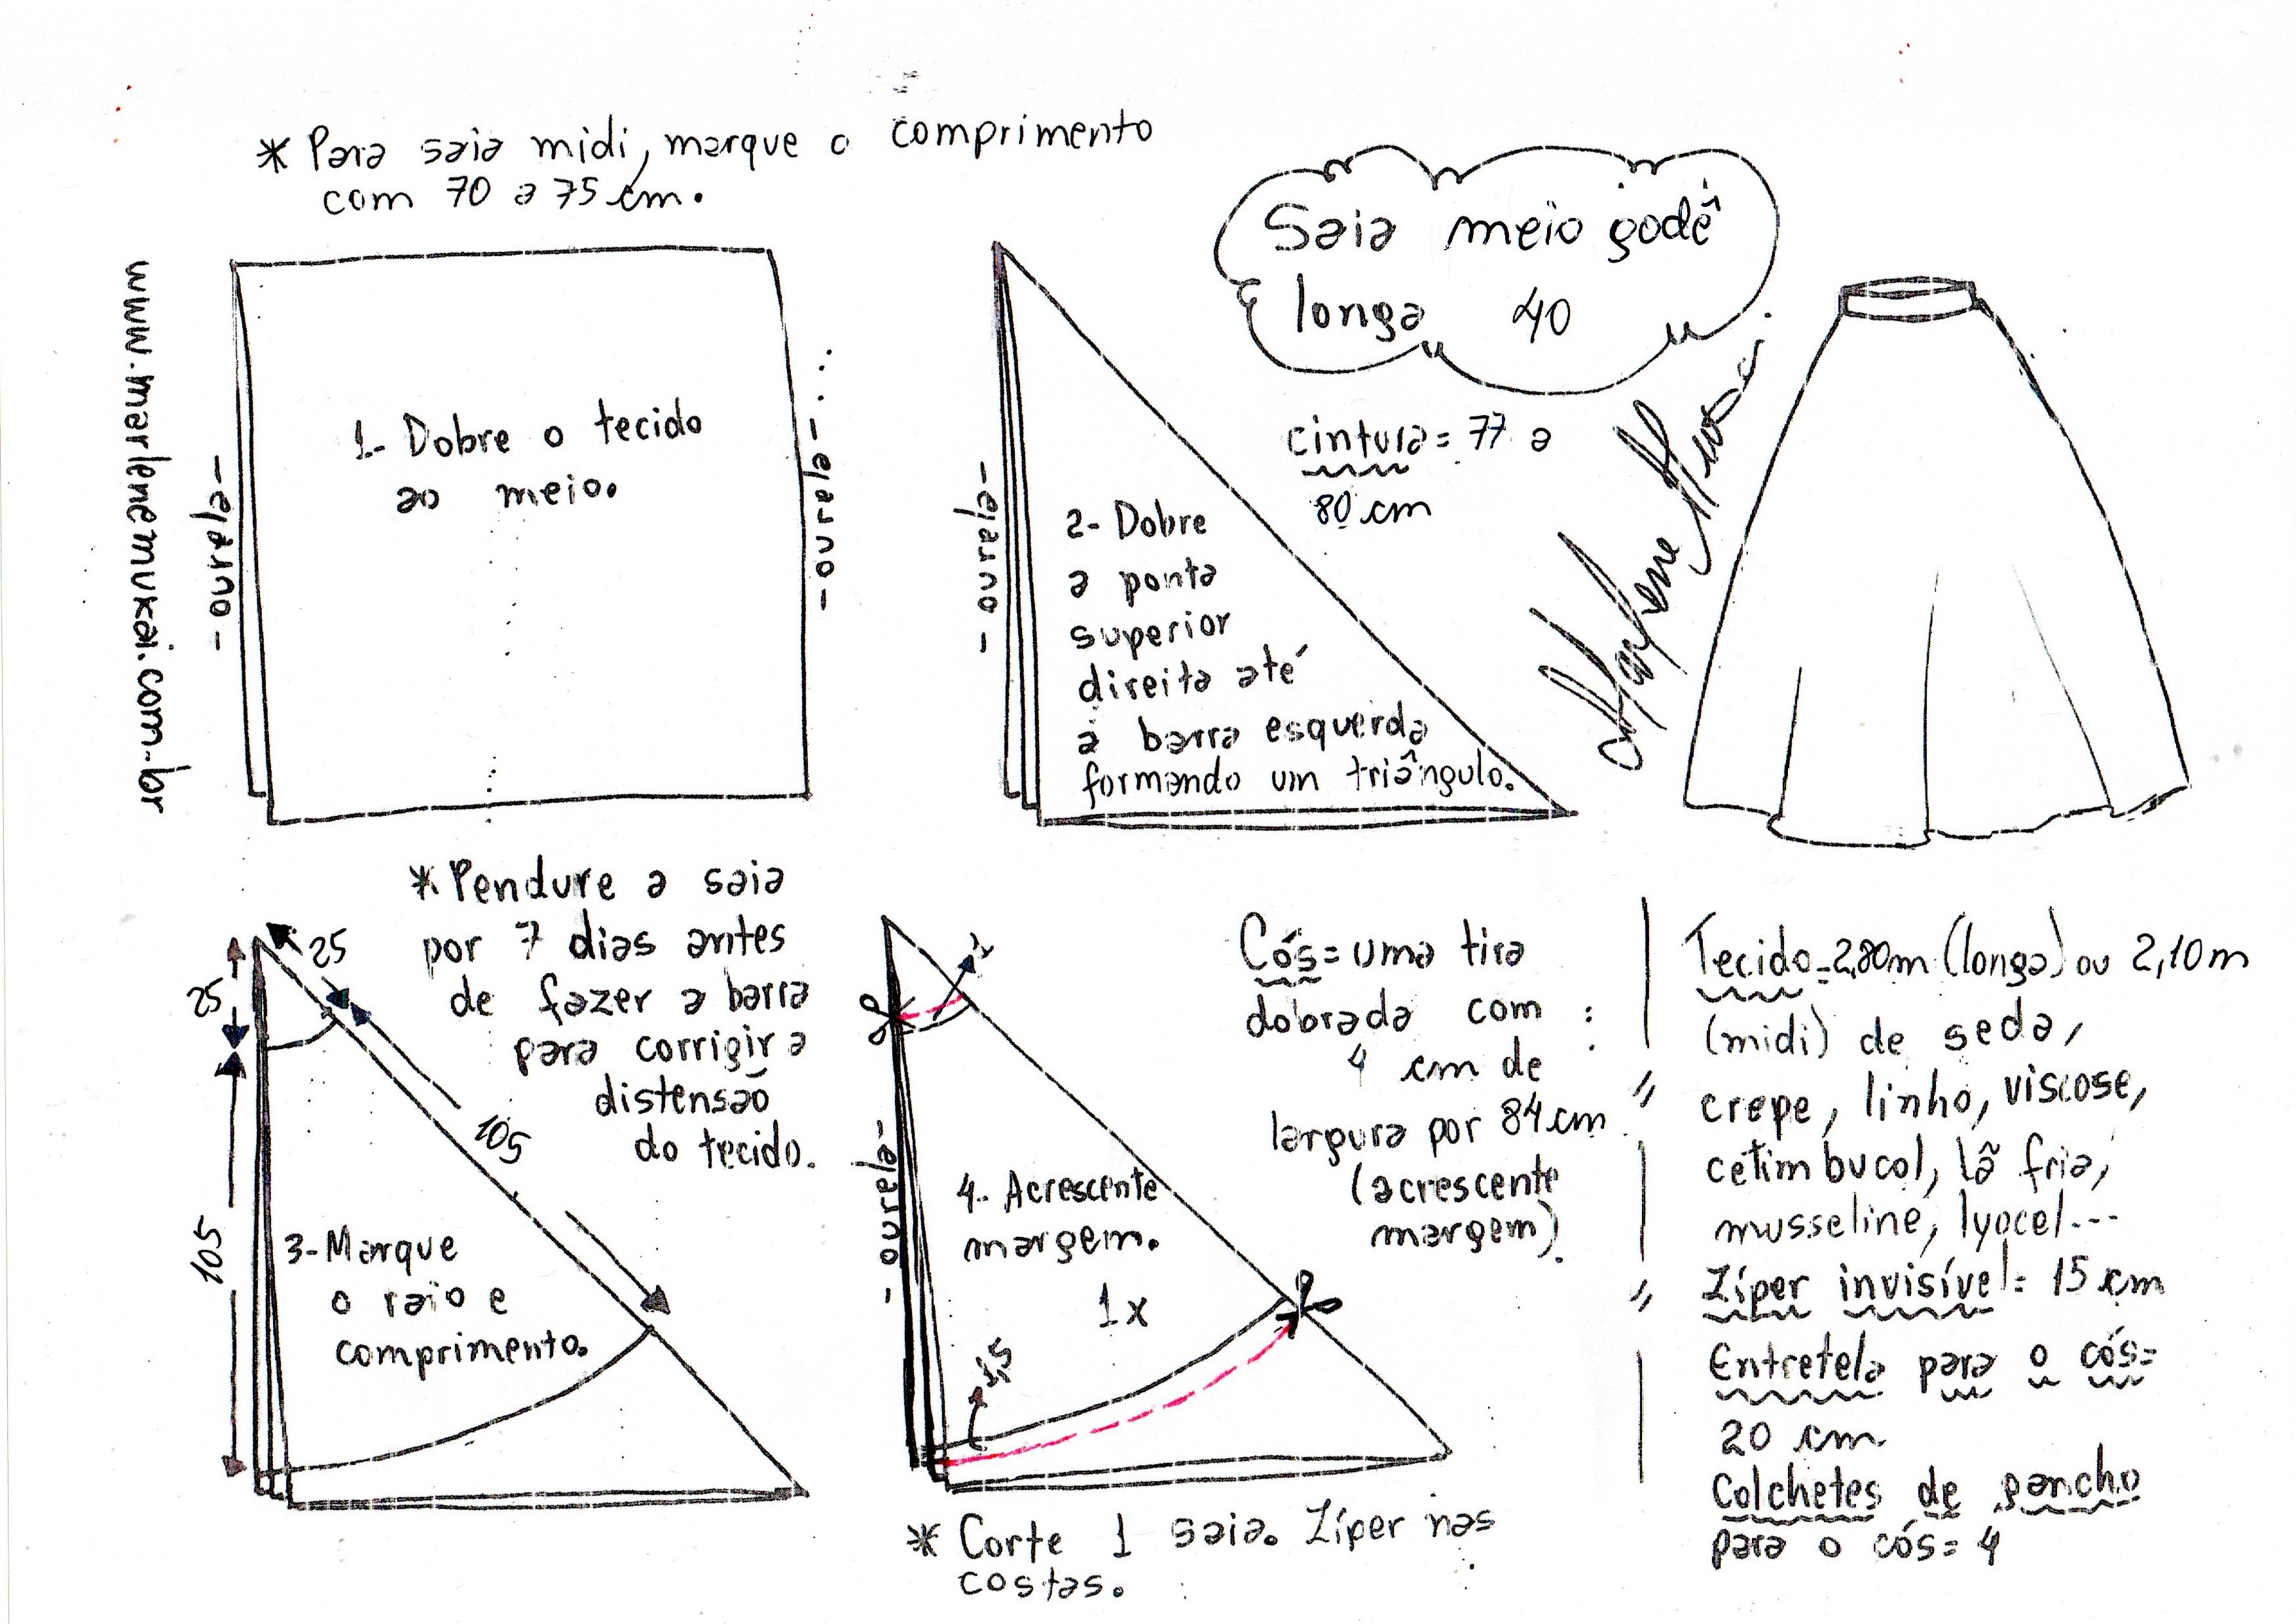 * Para saia midi, marque o comprimento
com 70 a 75 cm.
www.marlenemukai.com.br
Saia meio godê
longa 40
cintura = 77 a
80 cm
1- Dobre o tecido
ao meio.
- ourela -
- ourela -
- ourela -
2- Dobre
a ponta
superior
direita até
a barra esquerda
formando um triângulo.
* Pendure a saia
por 7 dias antes
de fazer a barra
para corrigir a
distensão
do tecido.
25
25
105
105
3- Marque
o raio e
comprimento.
- ourela -
4- Acrescente
margem.
1x
1
1,5
* Corte 1 saia. Zíper nas
costas.
Cós = uma tira
dobrada com
4 cm de
largura por 84 cm
(acrescente
margem).
Tecido = 2,80m (longa) ou 2,10m
(midi) de seda,
crepe, linho, viscose,
cetim bucol, lã fria,
musseline, lyocel...
Zíper invisível = 15 cm
Entretela para o cós =
20 cm
Colchetes de gancho
para o cós = 4